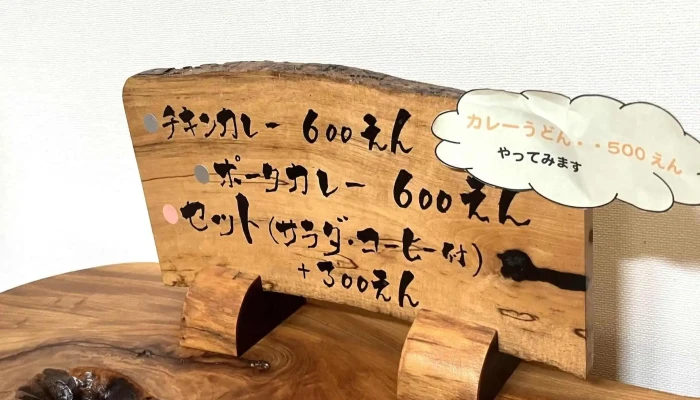 チキンカレー 600えん
ポークカレー 600えん
セット(サラダ・コーヒー付)
+300えん
カレーうどん・・500えん
やってみます